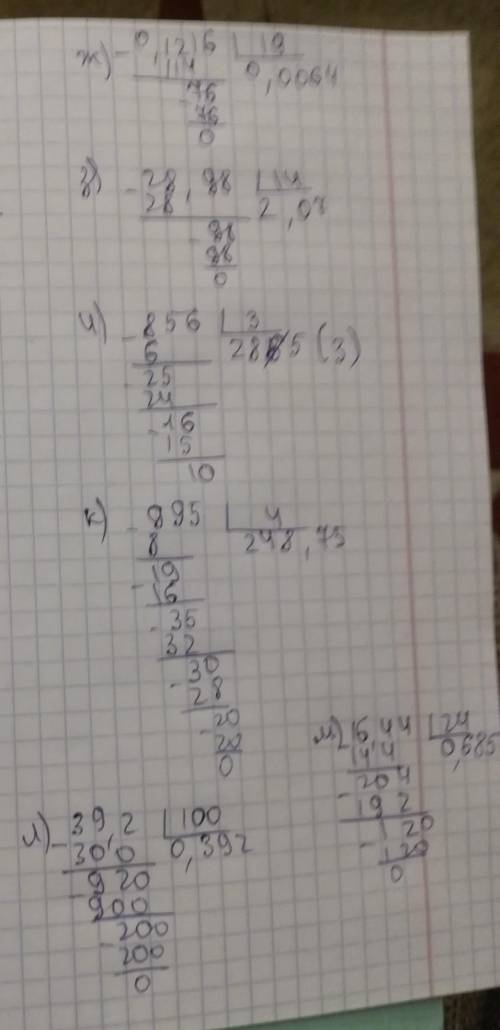 ж) - 0,1216 | 19
114 0,0064
- 76
76
0
з) - 28,98 | 14
28 2,07
- 98
98
0
и) - 856 | 3
6 285 (3)
- 25
24
- 16
15
10
к) - 895 | 4
8 248,75
- 19
16
- 35
32
- 30
28
- 20
20
0
л) - 39,2 | 100
30 0 0,392
- 920
900
- 200
200
0
м) 16,44 | 24
14 4 0,685
- 204
192
- 120
120
0